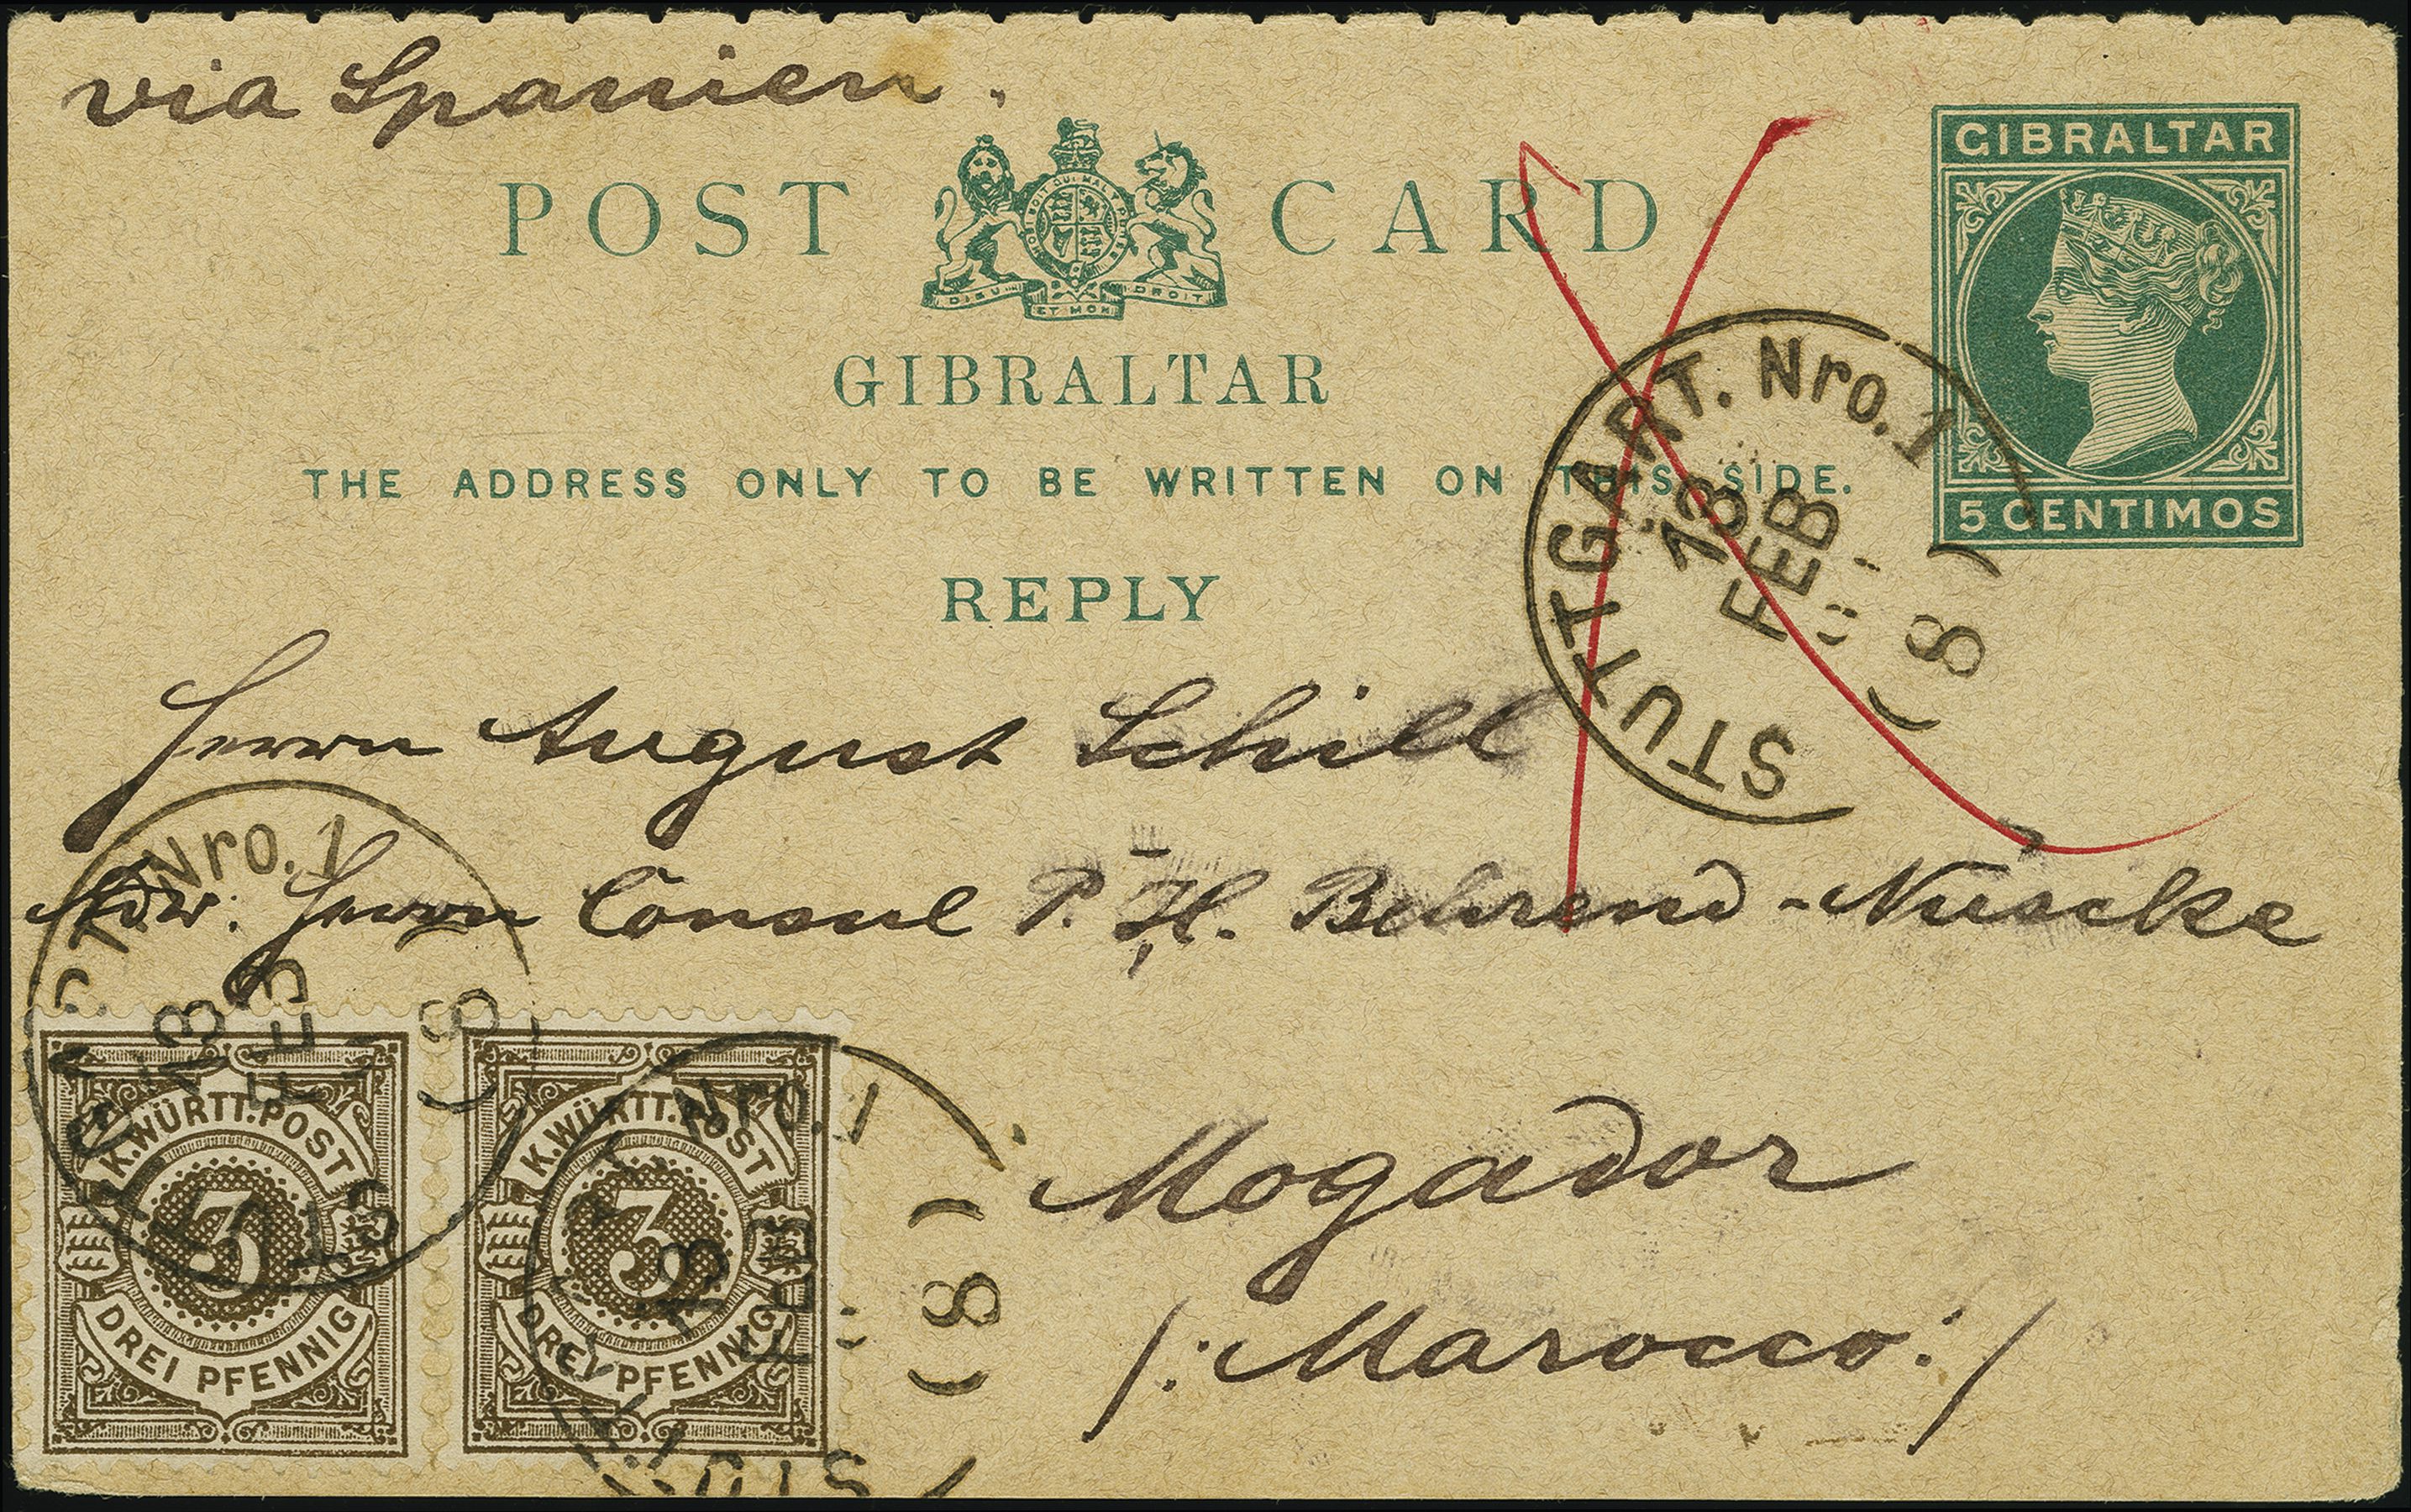 via Spanien.
POST CARD
HONI SOIT QUI MAL Y PENSE
DIEU ET MON DROIT
GIBRALTAR
5 CENTIMOS
GIBRALTAR
THE ADDRESS ONLY TO BE WRITTEN ON THIS SIDE.
REPLY
STUTTGART. Nro. 1
13
FEB
(8)
Herrn August Schill
Adr. Herrn Consul P. H. Behrend-Nuscke
Mogador
/: Marocco :/
STUTTGART. Nro. 1
13
FEB
(8)
K. WÜRTT. POST
3
DREI PFENNIG
STUTTGART. Nro. 1
13
FEB
(8)
K. WÜRTT. POST
3
DREI PFENNIG